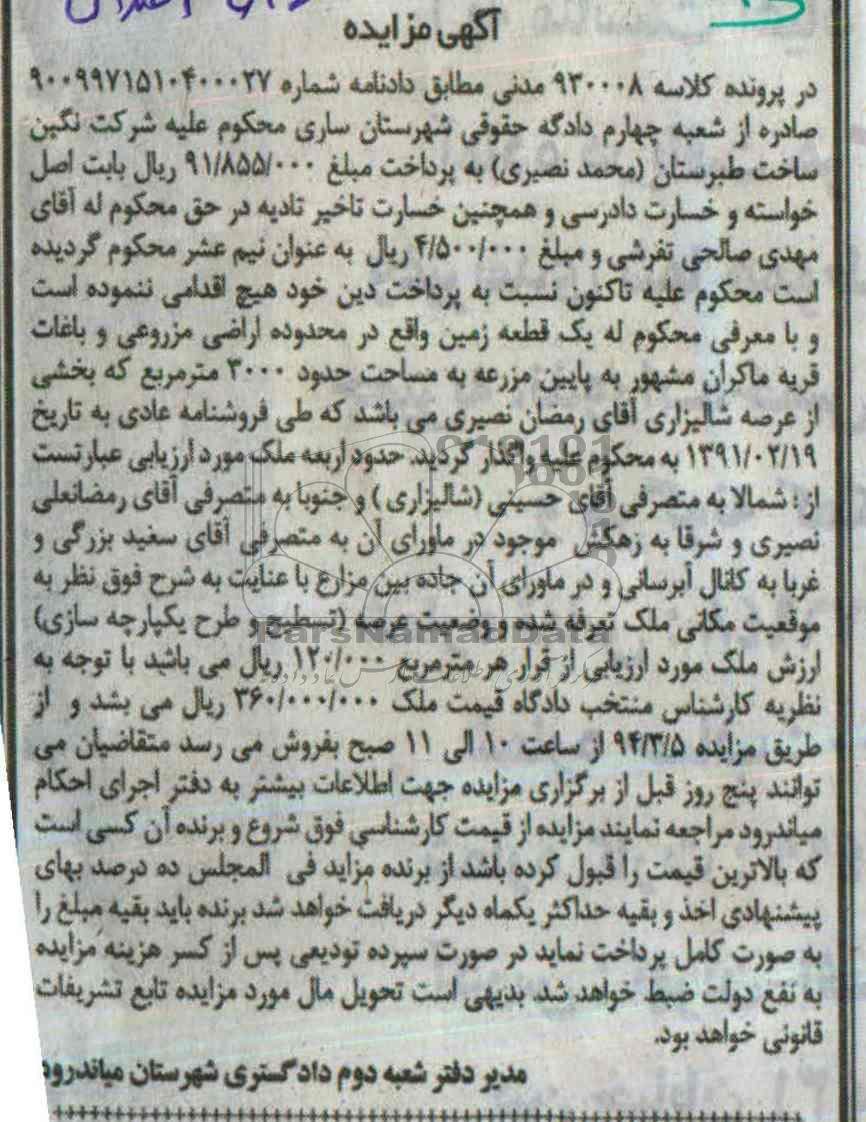 آگهی مزایده
در پرونده کلاسه ۹۳۰۰۰۸ مدنی مطابق دادنامه شماره ۹۰۰۹۹۷۱۵۱۰۴۰۰۰۲۷
صادره از شعبه چهارم دادگه حقوقی شهرستان ساری محکوم علیه شرکت نگین
ساخت طبرستان (محمد نصیری) به پرداخت مبلغ ۹۱/۸۵۵/۰۰۰ ریال بابت اصل
خواسته و خسارت دادرسی و همچنین خسارت تاخیر تادیه در حق محکوم له آقای
مهدی صالحی تفرشی و مبلغ ۴/۵۰۰/۰۰۰ ریال به عنوان نیم عشر محکوم گردیده
است محکوم علیه تاکنون نسبت به پرداخت دین خود هیچ اقدامی ننموده است
و با معرفی محکوم له یک قطعه زمین واقع در محدوده اراضی مزروعی و باغات
قریه ماکران مشهور به پایین مزرعه به مساحت حدود ۳۰۰۰ مترمربع که بخشی
از عرصه شالیزاری آقای رمضان نصیری می باشد که طی فروشنامه عادی به تاریخ
۱۳۹۱/۰۲/۱۹ به محکوم علیه واگذار گردید. حدود اربعه ملک مورد ارزیابی عبارتست
از : شمالا به متصرفی آقای حسینی (شالیزاری ) و جنوبا به متصرفی آقای رمضانعلی
نصیری و شرقا به زهکش موجود در ماورای آن به متصرفی آقای سعید بزرگی و
غربا به کانال آبرسانی و در ماورای آن جاده بین مزارع با عنایت به شرح فوق نظر به
موقعیت مکانی ملک تعرفه شده و وضعیت عرصه (تسطیح و طرح یکپارچه سازی)
ارزش ملک مورد ارزیابی از قرار هر مترمربع ۱۲۰/۰۰۰ ریال می باشد با توجه به
نظریه کارشناس منتخب دادگاه قیمت ملک ۳۶۰/۰۰۰/۰۰۰ ریال می بشد و از
طریق مزایده ۹۴/۳/۵ از ساعت ۱۰ الی ۱۱ صبح بفروش می رسد متقاضیان می
توانند پنج روز قبل از برگزاری مزایده جهت اطلاعات بیشتر به دفتر اجرای احکام
میاندرود مراجعه نمایند مزایده از قیمت کارشناسی فوق شروع و برنده آن کسی است
که بالاترین قیمت را قبول کرده باشد از برنده مزاید فی المجلس ده درصد بهای
پیشنهادی اخذ و بقیه حداکثر یکماه دیگر دریافت خواهد شد برنده باید بقیه مبلغ را
به صورت کامل پرداخت نماید در صورت سپرده تودیعی پس از کسر هزینه مزایده
به نفع دولت ضبط خواهد شد. بدیهی است تحویل مال مورد مزایده تابع تشریفات
قانونی خواهد بود.
مدیر دفتر شعبه دوم دادگستری شهرستان میاندرود
ParsNamadData